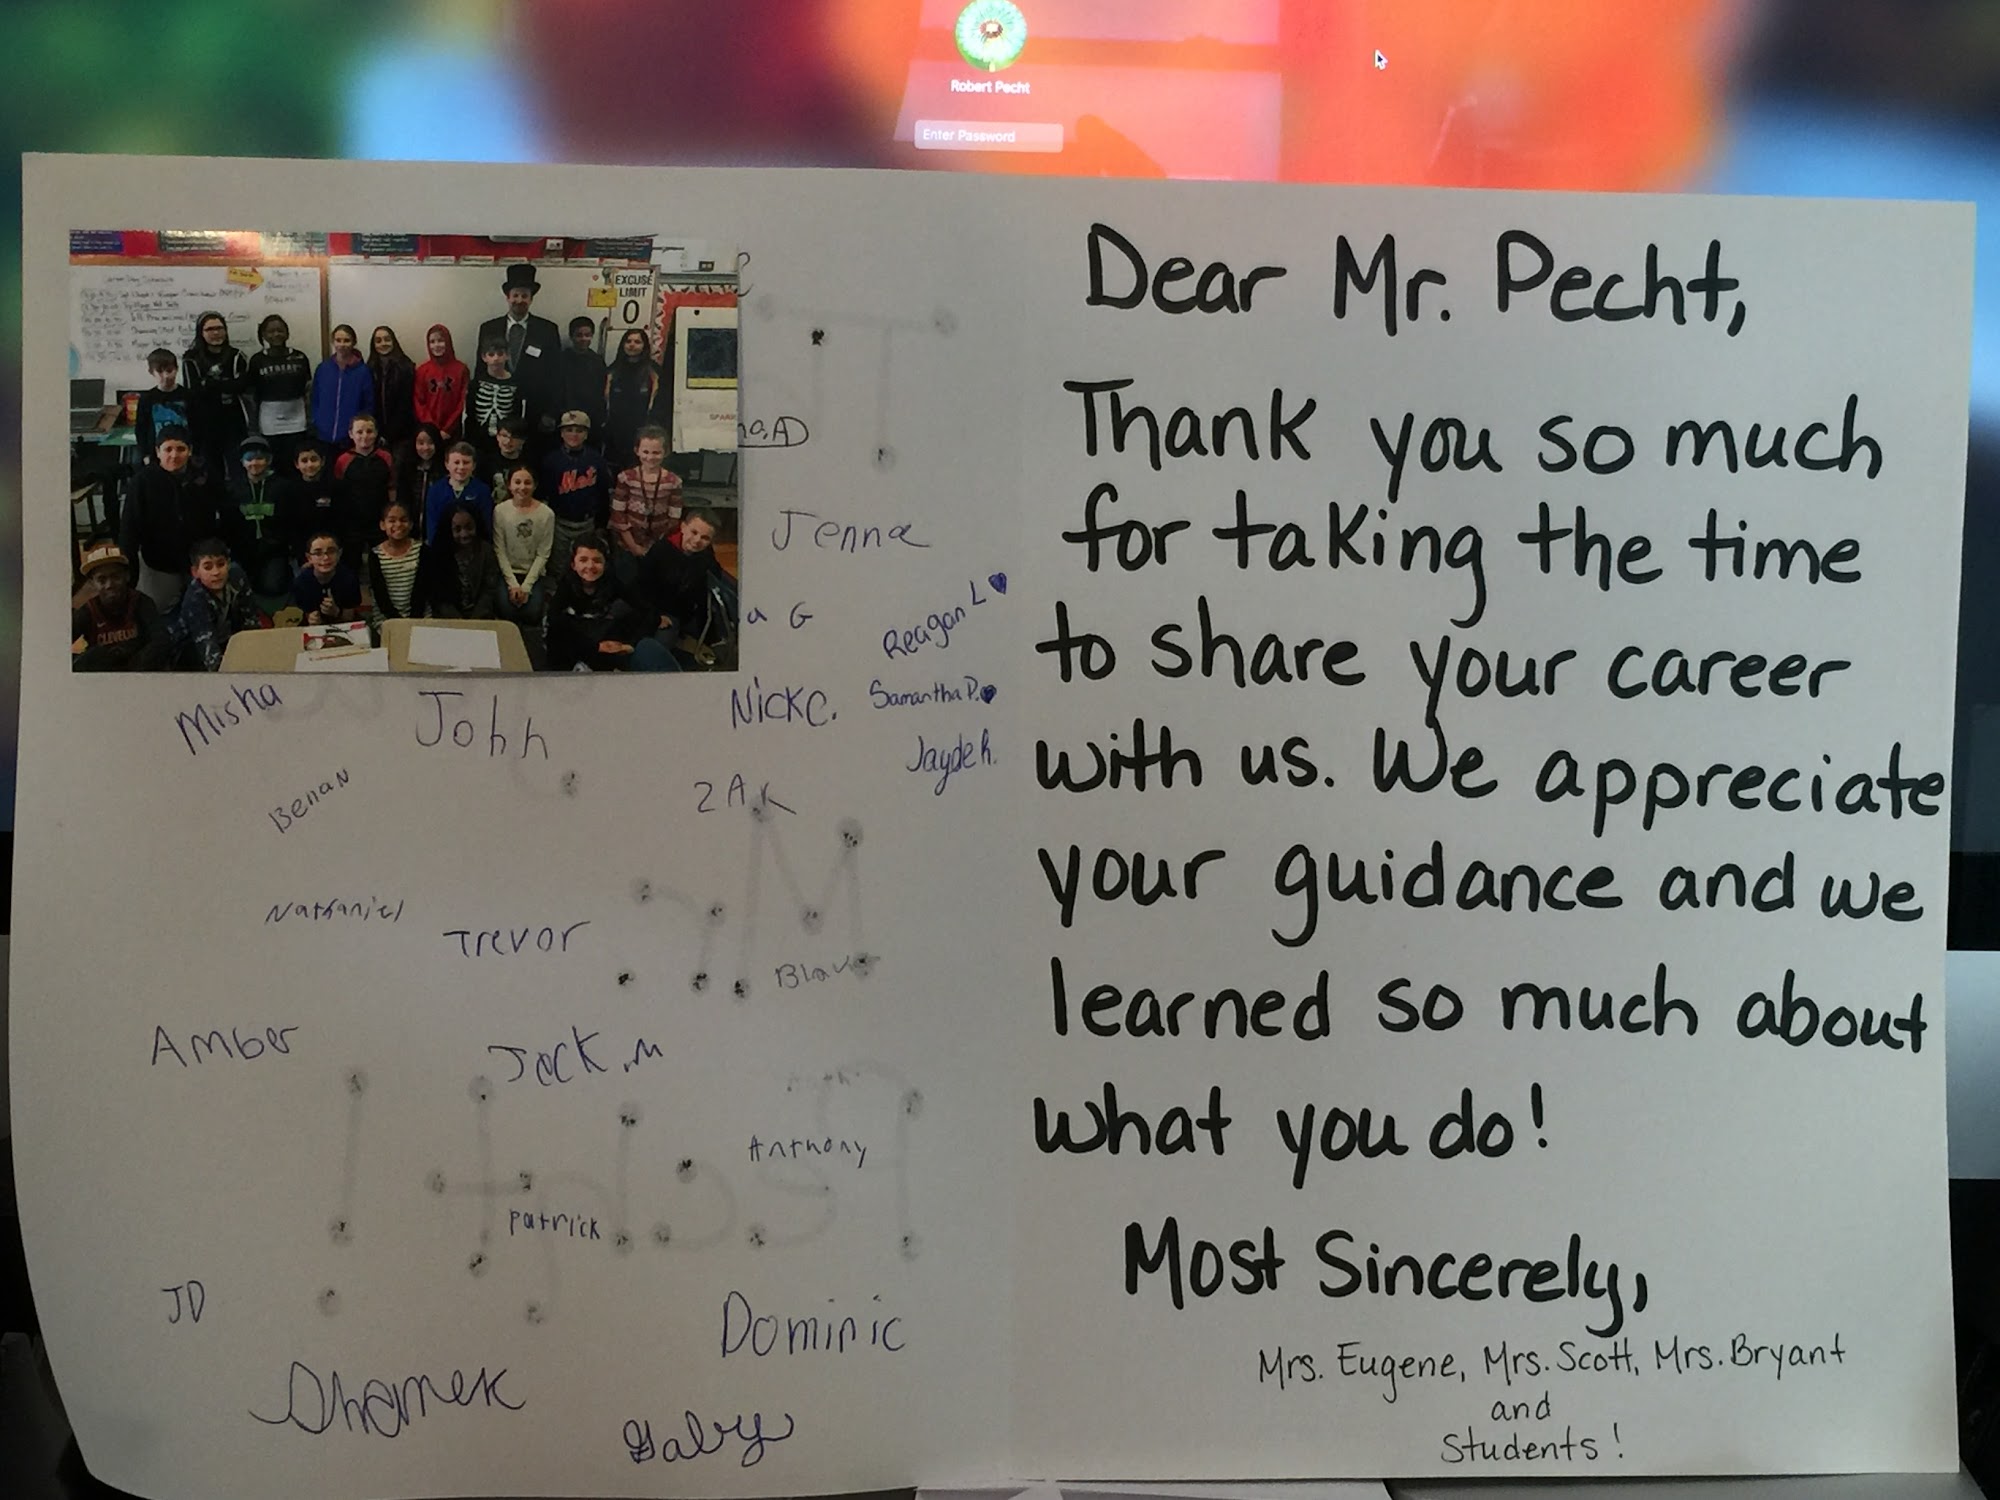 Robert Pecht
Enter Password
EXCUSE
LIMIT
0
CLEVELAND
Mets
Jenna
a G
Reagan L
Samantha P.
Jayde R.
Misha
John
Nick C.
Benan
ZAK
Nathaniel
Trevor
Amber
Jack M
Anthony
Patrick
JD
Dominic
Shamek
Gaby
Dear Mr. Pecht,
Thank you so much
for taking the time
to share your career
with us. We appreciate
your guidance and we
learned so much about
what you do!
Most Sincerely,
Mrs. Eugene, Mrs. Scott, Mrs. Bryant
and
Students!